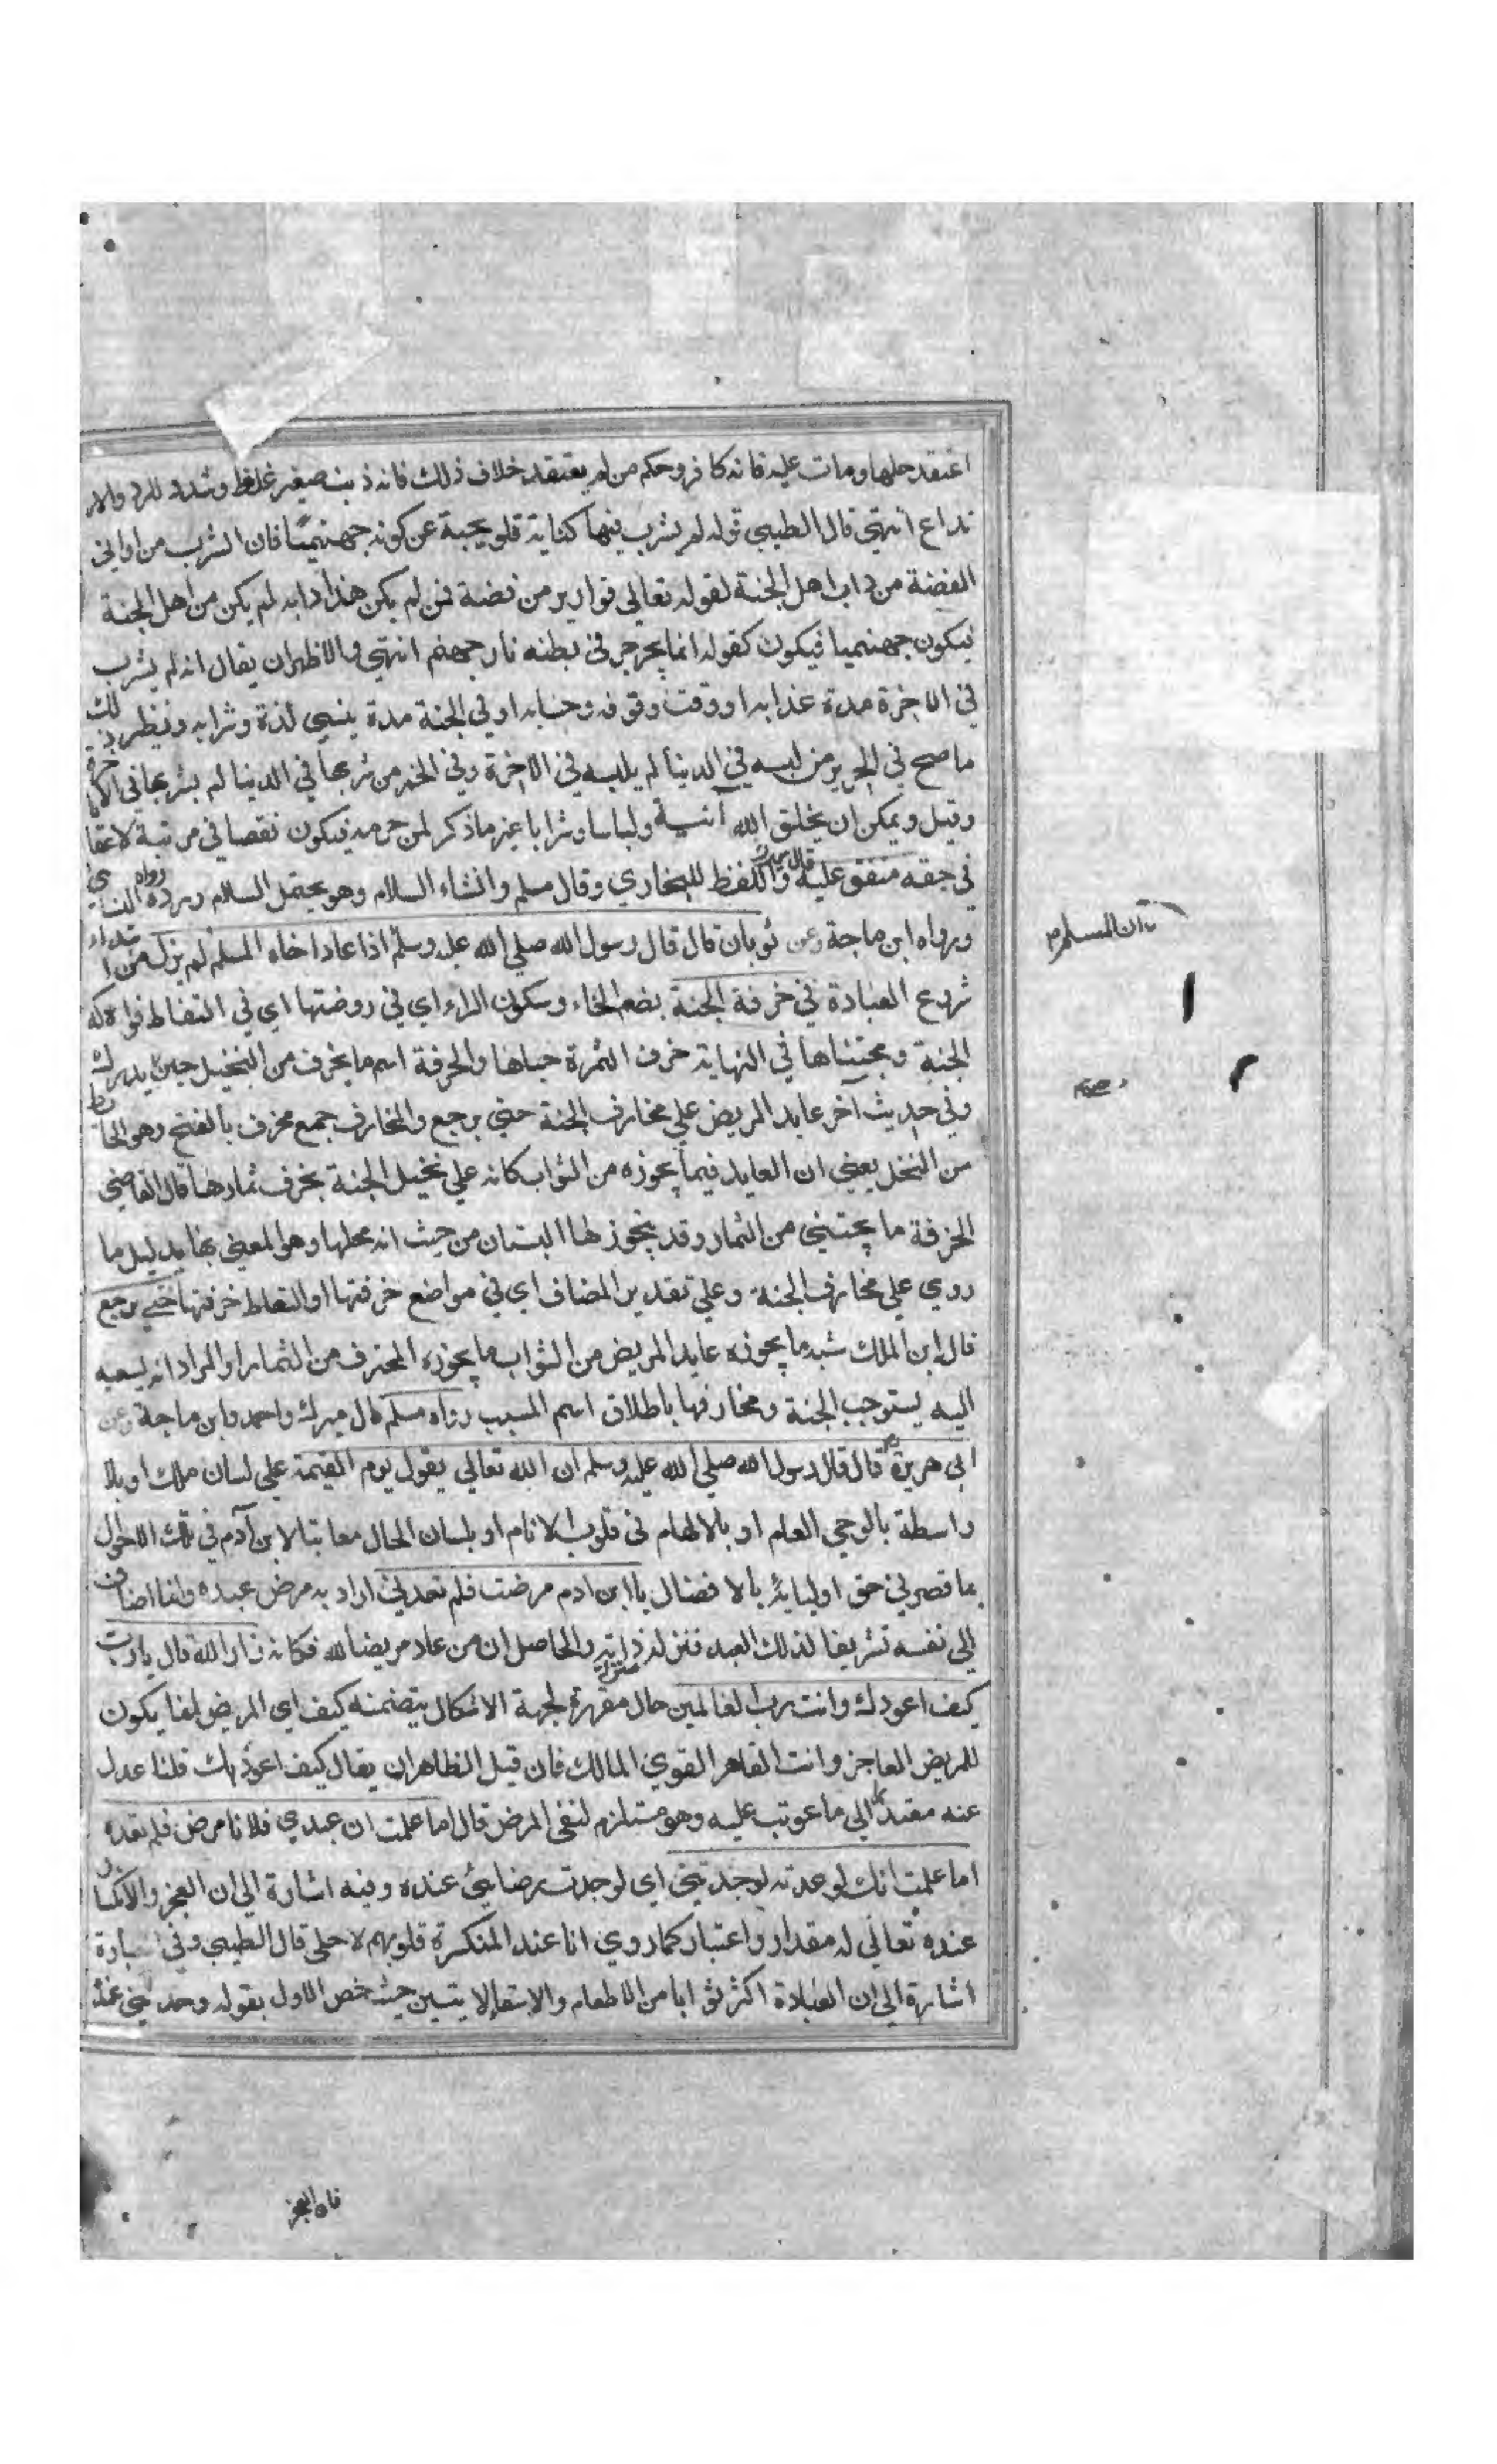 اعتقد حلها ومات عليه فانه كافر وحكم من لم يعتقد خلاف ذلك فانه ذنب صغير غلظ وشدد للرد والار
تداع انتهي قال الطيبي قوله لم يشرب فيها كناية تلويحية عن كونه جهنميا فان الشرب من اواني
الفضة من داب اهل الجنة لقوله تعالي قوارير من فضة فمن لم يكن هذا دابه لم يكن من اهل الجنة
فيكون جهنميا فيكون كقوله انما يجرجر في بطنه نار جهنم انتهي والاظهر ان يقال انه لم يشرب
في الاخرة مدة عذابه او وقت وقوفه وحسابه او في الجنة مدة ينسي لذة وشرابه ونظير ذلك
ما صح في الحرير من لبسه في الدنيا لم يلبسه في الاخرة وفي الخمر من شربها في الدنيا لم يشربها في الاخرة
وقيل ويمكن ان يخلق الله آنية ولباسا وشرابا غير ما ذكر لمن حرمه فيكون نقصا في مرتبة لا عقا
في حقه متفق عليه قال ميرك واللفظ للبخاري وقال مسلم وافشاء السلام وهو يحتمل السلام ورده رواه النسايي
ورواه ابن ماجة وعن ثوبان قال قال رسول الله صلي الله عليه وسلم اذا عاد اخاه المسلم لم يزل من ابتداء
شروع العيادة في خرفة الجنة بضم الخاء وسكون الراء اي في روضتها اي في التقاط فواكه
الجنة ومجتناها في النهاية خرف الثمرة جناها والخرفة اسم ما يخرف من النخيل حين يدرك
وفي حديث آخر عايد المريض علي مخارف الجنة حتي يرجع والمخارف جمع مخرف بالفتح وهو الحايط
من النخل يعني ان العايد فيما يحوزه من الثواب كانه علي نخيل الجنة يخرف ثمارها قال القاضي
الخرفة ما يجتني من الثمار وقد يتجوز لها البستان من حيث انه محلها وهو المعني بها بدليل ما
روي علي مخارف الجنة وعلي تقدير المضاف اي في مواضع خرفتها او التقاط خرفتها حتي يرجع
قال ابن الملك شبه ما يحوزه عايد المريض من الثواب بما يحوزه المحترف من الثمار او المراد انه بسعيه
اليه يستوجب الجنة ومخارفها باطلاق اسم المسبب رواه مسلم قال ميرك واحمد وابن ماجة وعن
ابي هريرة قال قال رسول الله صلي الله عليه وسلم ان الله تعالي يقول يوم القيمة علي لسان ملك او بلا
واسطة بالوحي العام او بالالهام في قلوب الانام او بلسان الحال معاتبا لابن آدم في تلك الاحوال
بما قصر في حق اوليائه بالافضال يا ابن ادم مرضت فلم تعدني اراد به مرض عبده وانما اضاف
الي نفسه تشريفا لذلك العبد فنزله منزلة ذاته والحاصل ان من عاد مريضا لله فكانه زار الله قال يا رب
كيف اعودك وانت رب العالمين حال مقررة لجهة الاشكال يتضمنه كيف اي المرض انما يكون
للمريض العاجز وانت القاهر القوي المالك فان قيل الظاهر ان يقال كيف اعوذ بك قلنا عدل
عنه معتذرا الي ما عوتب عليه وهو مستلزم لنفي المرض قال اما علمت ان عبدي فلانا مرض فلم تعده
اما علمت انك لو عدته لوجدتني اي لوجدت رضايئ عنده وفيه اشارة الي ان العجز والانكسار
عنده تعالي له مقدار واعتبار كما روي انا عند المنكسرة قلوبهم لاجلي قال الطيبي وفي العبارة
اشارة الي ان العيادة اكثر ثوابا من الاطعام والاسقاء الايتيين حيث خص الاول بقوله وجدتني عنده
ان المسلم
فان العجز